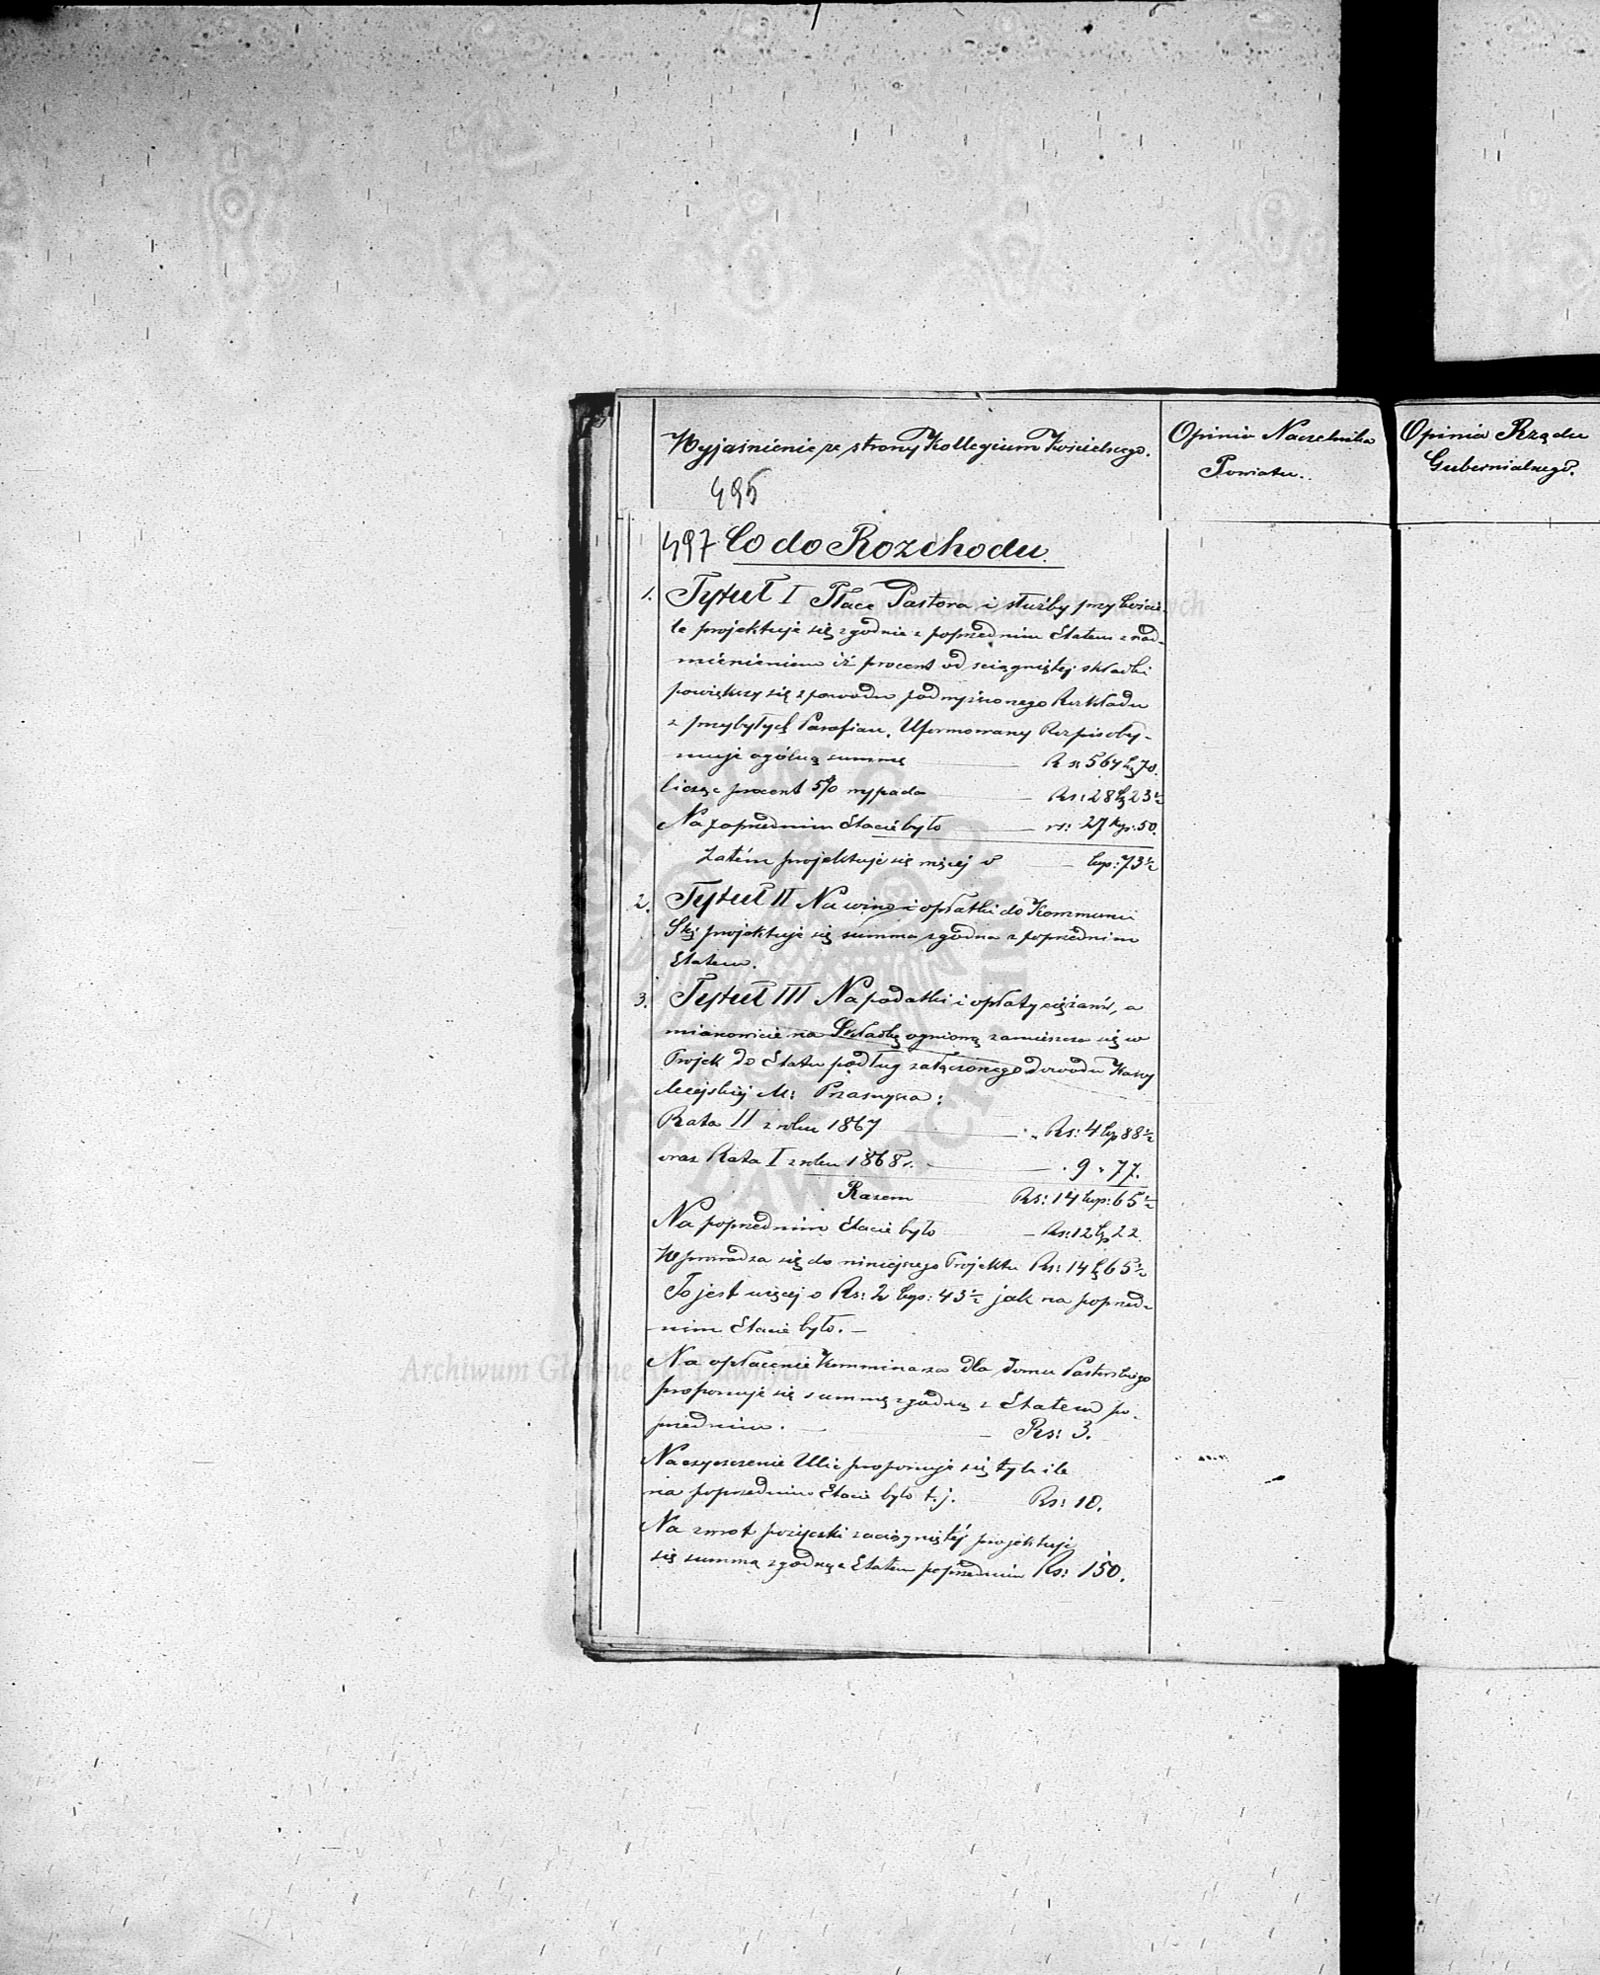 Wyjaśnienie ze strony Kollegium Kościelnego.
Opinia Naczelnika
Powiatu.
Opinia Rządu
Gubernialnego.
495
497 Co do Rozchodu.
1. Tytuł I Płace Pastora i służby przy koście-
le projektuje się zgodnie z poprzednim Etatem z nad-
mienieniem iż procent od sciągniętej składki
powiększy się z powodu podwyższonego Rozkładu
z przybyłych Parafian. Uformowany Rozpis oby-
muje ogólną summę Rs 564 kp 70.
licząc procent 5% wypada Rs: 28 kp 23½
Na poprzednim Etacie było rs: 27 kp: 50.
Zatém projektuje się więcej o kop: 73½
2. Tytuł II Na wino i opłatki do Kommunii
Stej projektuje się summa zgodna z poprzednim
Etatem.
3. Tytuł III Na podatki i opłaty ciężarów, a
mianowicie na Składkę ogniową zamieszcza się w
Projek do Etatu podług załączonego dowodu Kassy
Miejskiej M: Przasnysza:
Rata II z roku 1867 Rs: 4 kp 88½
oraz Rata I z roku 1868 r. 9 " 77.
Razem Rs: 14 kop: 65½
Na poprzednim Etacie było Rs: 12 kp 22.
Wprowadza się do niniejszego Projektu Rs: 14 k 65½
To jest więcej o Rs: 2 kop: 43½ jak na poprzed-
nim Etacie było.—
Na opłacenie Komminarza dla Domu Pasterskiego
proponuje się summę zgodną z Etatem po-
przednim. Rs: 3.
Na czyszczenie Ulic proponuje się tyle ile
na poprzednim Etacie było t.j. Rs: 10.
Na zwrot pożyczki zaciągniętéj projektuje
się summą zgodną z Etatem poprzednim Rs: 150.
Archiwum Główne Akt Dawnych
Archiwum Główne Akt Dawnych